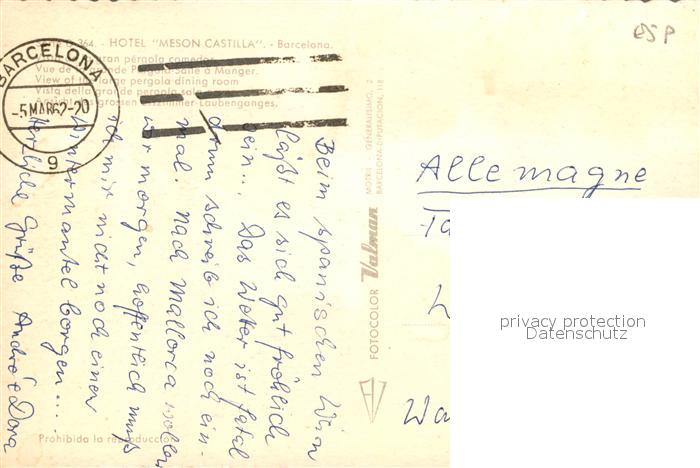 364. - HOTEL "MESON CASTILLA". - Barcelona.
gran pérgola comedor
Vue de la grande Pergola-Salle à Manger.
View of the large pergola dining room
Vista della grande pergola
grossen Esszimmer-Laubenganges,
BARCELONA
-5 MAR 62-20
9
Beim spanischen Wein
läßt es sich gut fröhlich
sein... Das Wetter ist fatal
drum schreib ich noch ein-
mal. Nach Mallorca wollen
wir morgen, hoffentlich muß
ich mir nicht noch einen
Wintermantel borgen...
Herzliche Grüße André + Dora
Prohibida la reproducción
FOTOCOLOR Valman
MOTRIL - GENERALISIMO, 2
BARCELONA-DIPUTACION, 118
ESP
Allemagne
privacy protection
Datenschutz
Wa